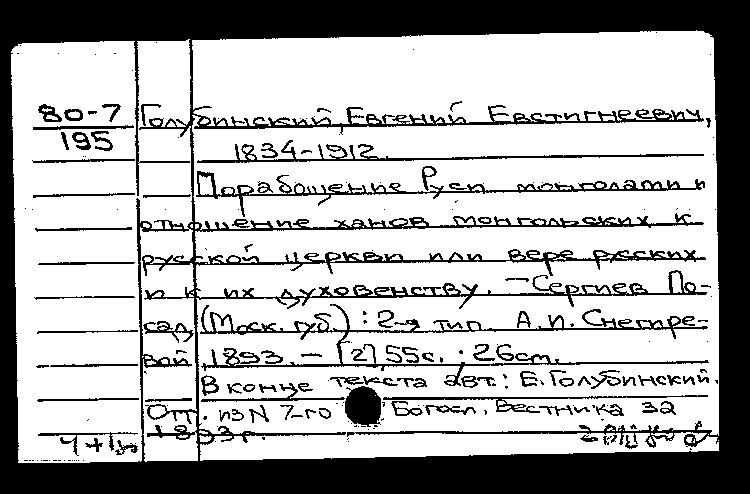 80-7
195
Голубинский, Евгений Евстигнеевич,
1834-1912.
Порабощение Руси монголами и
отношение ханов монгольских к
русской церкви или вере русских
и к их духовенству. - Сергиев По-
сад (Моск. губ.) : 2-я тип. А.И. Снегире-
вой, 1893. - [2] 55с. ; 26см.
В конце текста авт.: Е. Голубинский.
Отт. из N 7-го Богосл. Вестника за
1893г.